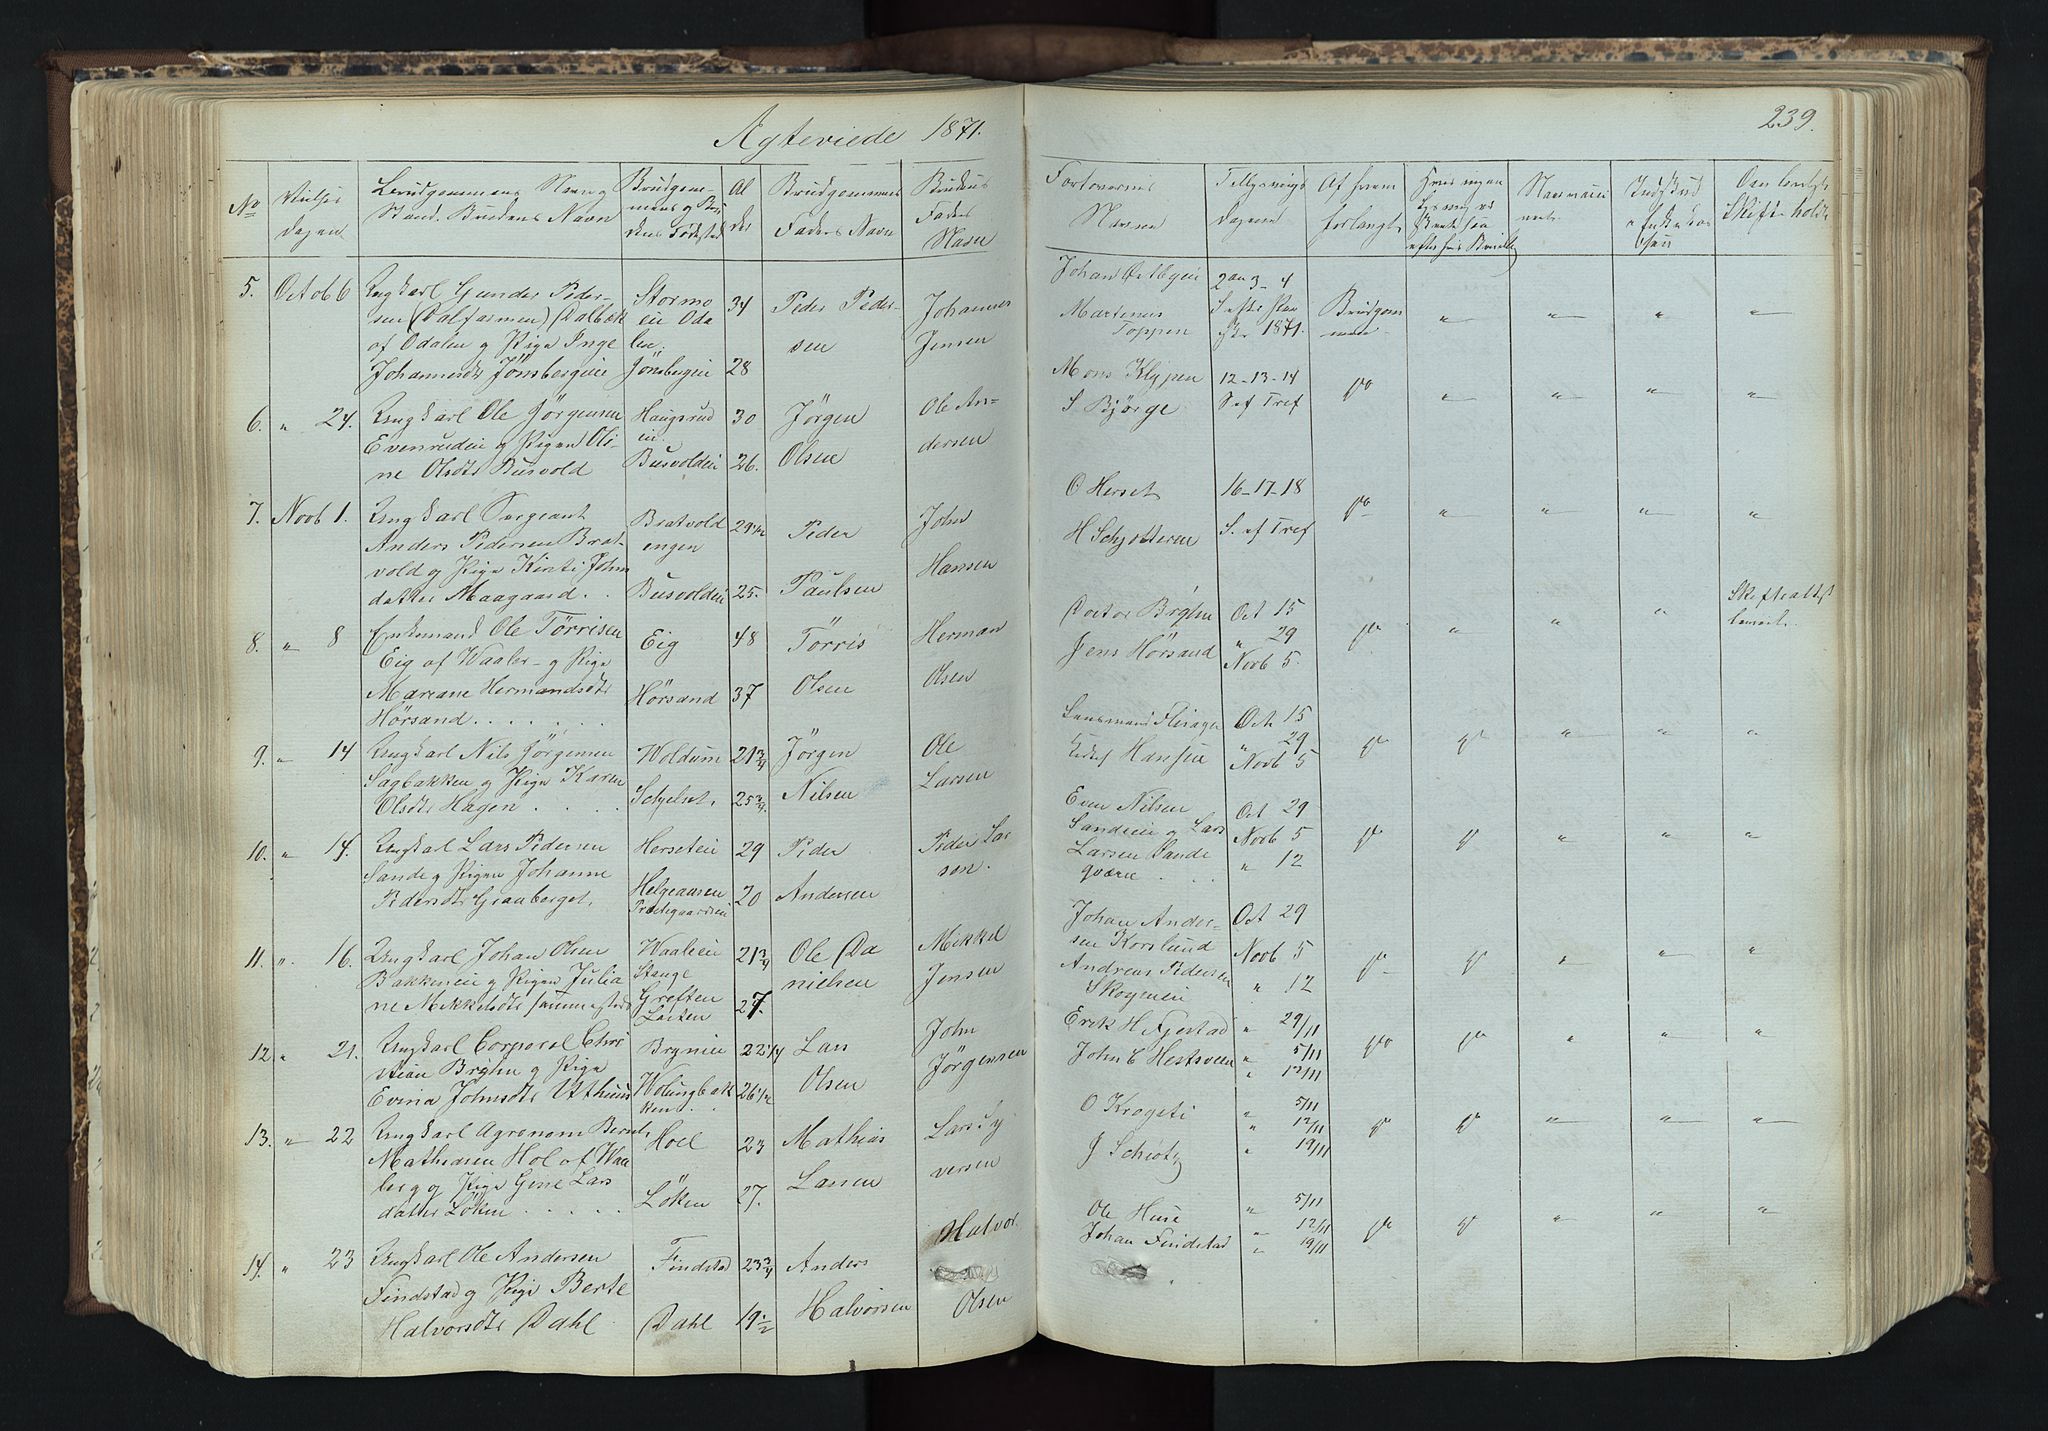 Agteviede 1871.
239.
No
Vielses dagen
Brudgommens Navn og Stand. Brudens Navn
Brudgommens og Brudens Fødested
Alder
Brudgommens Faders Navn
Brudens Faders Navn
Forlovernes Navne
Tillysnings dagene
Af hvem forlangt
5. Octob 6
Ungkarl Gunder Peder-
sen (Dalfarmen) (Dalbæk
af Odalen og Pige Inge
Johannesdtr Jönsbergeie
Stormo
eie Oda
len.
Jönsbergeie
34
28
Peder Peder-
sen
Johannes
Jensen
Johan Østbyeie
Martenus
Toppen
2den 3-4
S efter Paa
ske 1871.
Brudgom
men
6. " 24.
Ungkarl Ole Jörgensen
Evenrudeie og Pigen Oli-
ne Olsdtr Busvold
Haugsrud
eie.
Busvoldeie
30
26.
Jörgen
Olsen
Ole An-
dersen
Mons Klyppen
S Bjørge
12-13-14
S ef Tref
do
7. Novb 1.
Ungkarl Sergeant
Anders Pedersen Brat-
vold og Pige Kirsti John
datter Maagaard . .
Bratvold
engen
Busvoldeie
29 1/2
25.
Peder
Paulsen
John
Hansen
O Herset
H Schjøtteren
16-17-18
S. ef Tref
do
8. " 8
Enkemand Ole Törrisen
Eig af Vaaler - og Pige
Mariane Hermandsdtr
Hörsand . . . . . .
Eig
Hörsand
48
37
Törris
Olsen
Herman
Olsen
Doctor Bryhn
Jens Hörsand
Oct 15
" 29
Novb 5.
do
Skifteattest
9. " 14
Ungkarl Nils Jörgensen
Sagbakken og Pige Karen
Olsdtr Hagen . . .
Woldum
21 3/4
25 3/4.
Jörgen
Nilsen
Ole
Larsen
Lensmand Flisager
Hansen
Oct 15
" 29
Novb 5
do
do
10. " 14.
Ungkarl Lars Pedersen
Sande og Pigen Johanne
Pedersdtr Grauberget.
Herseteie
Helgeaasen
Præstegaardseie
29
20
Peder
Andersen
Peder Lar
sen.
Even Nilsen
Sandeeie og Lars
Larsen Sande
qværn . . .
Oct 29
Novb 5
" 12
do
do
11. " 16.
Ungkarl Johan Olsen
Bakkeneie og Pigen Julia
ne Mikkelsdtr sammested
Waaleeie
Stange
Greften
Løiten
21 3/4
27.
Ole Da
nielsen
Mikkel
Jensen
Johan Ander-
sen Korslund
Andreas Pedersen
Skogeneie
Oct 29
Novb 5
" 12
do
do
12. " 21.
Ungkarl Corporal Chri
stian Bryhn og Pige
Evina Johnsdtr Uthuus
Brynie
Wolungbak
ken . .
22 1/4
26 1/2
Lars
Olsen
John
Jörgensen
Erik H. Nyestad
John E Hestsveen
" 29/11
" 5/11
" 12/11
do
do
13. " 22
Ungkarl Agronom Bernt
Mathiasen Hol af Waa
ler og Pige Gine Lars
datter Löken . . . . .
Hoel
Löken
23
27.
Mathias
Larsen
Lars Sy
versen
O Krogsti
J Schiøtz
" 5/11
" 12/11
" 19/11
do
do
14. " 23
Ungkarl Ole Andersen
Findstad og Pige Berte
Halvorsdtr Dahl.
Findstad
Dahl
23 3/4
19 1/2
Anders
Halvorsen
Halvor
Olsen
Ole Huse
Johan Findstad
" 5/11
" 12/11
" 19/11
do
do